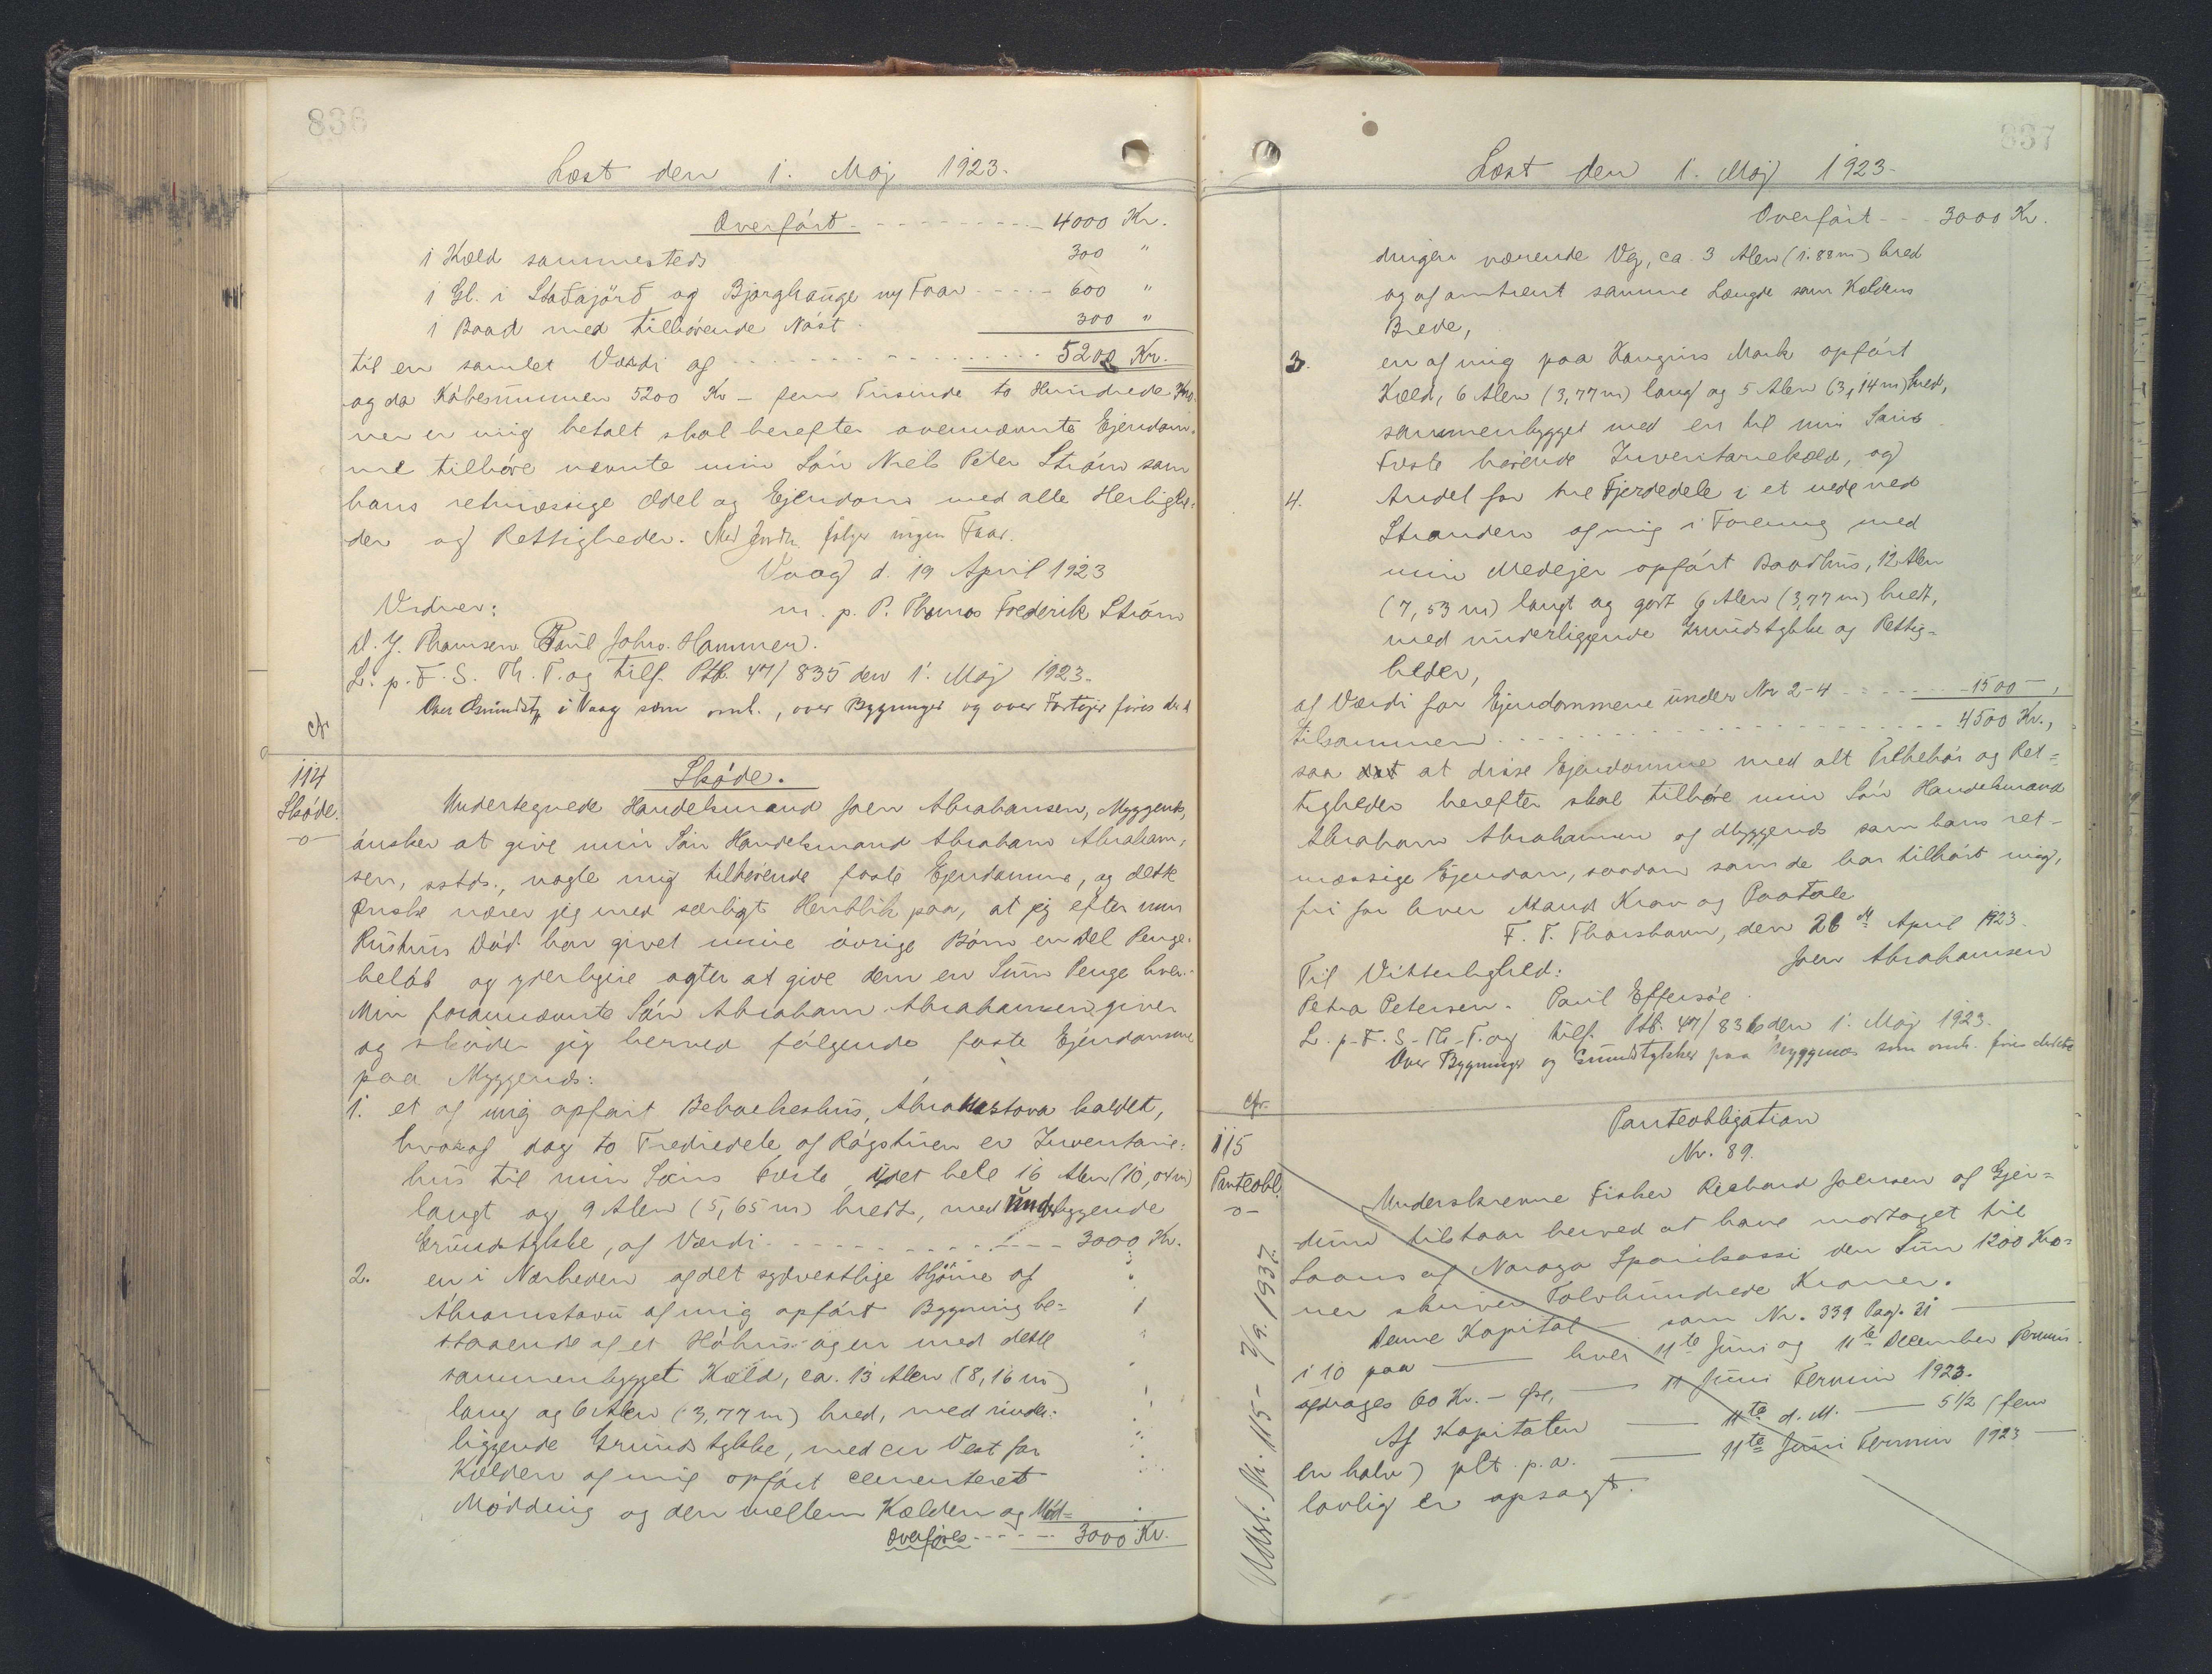 836
Læst den 1. Maj 1923.
Overført - - - - - - - - - - 4000 Kr.
1 Kæld sammesteds 300 "
1 Gl. i Staðajørð og Bjarghauge ny Faar - - - - - 600 "
1 Baad med tilhørende Nøst. 300 "
til en samlet Værdi af - - - - - - - - - - 5200 Kr.
og da Købesummen 5200 Kr - fem Tusinde to Hundrede Kro-
ner er mig betalt skal herefter ovennævnte Ejendom-
me tilhøre nævnte min Søn Niels Peter Strøm som
hans retmæssige Odel og Ejendom med alle Herlighe-
der og Rettigheder. Med Jorden følger ingen Faar.
Vaag d. 19 April 1923
Vidner: m. p. P. Thomas Frederik Strøm
D. J. Thomsen Poul Johs. Hammer.
L. p. F. S. Th. T. og tilf. Ptb. 47/835 den 1. Maj 1923.
Over Grundst. i Vaag som omh., over Bygninger og over Fartøjer føres der ikke
cfr.
114
Skøde.
-o-
Skøde.
Undertegnede Handelsmand Joen Abrahamsen, Myggenæs,
ønsker at give min Søn Handelsmand Abraham Abraham-
sen, sstds., nogle mig tilhørende faste Ejendomme, og dette
Ønske nærer jeg med særligt Henblik paa, at jeg efter min
Hustrus Død har givet mine øvrige Børn en Del Penge-
beløb og yderligere agter at give dem en Sum Penge hver.
Min forannævnte Søn Abraham Abrahamsen giver
og skøder jeg herved følgende faste Ejendomme
paa Myggenæs:
1. et af mig opført Beboelseshus, Ábramstova kaldet,
hvoraf dog to Trediedele af Røgstuen er Inventarie-
hus til min Søns Fæste, i det hele 16 Alen (10,04 m)
langt og 9 Alen (5,65 m) bredt, med underliggende
Grundstykke, af Værdi - - - - - - - - - - 3000 Kr.
2. en i Nærheden af det sydvestlige Hjørne af
Ábramstovu af mig opført Bygning be-
staaende af et Høhus og en med dette
sammenbygget Kæld, ca. 13 Alen (8,16 m)
lang og 6 Alen (3,77 m) bred, med under-
liggende Grundstykke, med en Vest for
Kælden af mig opført cementeret
Mødding og den mellem Kælden og Mød-
Overføres - - - - - 3000 Kr.
837
Læst den 1. Maj 1923.
Overført - - - 3000 Kr.
dingen værende Vej, ca. 3 Alen (1.88 m) bred
og af omtrent samme Længde som Kældens
Brede,
3. en af mig paa Kongens Mark opført
Kæld, 6 Alen (3,77 m) lang og 5 Alen (3,14 m) bred,
sammenbygget med en til min Søns
Fæste hørende Inventariekæld, og
4. Andel for tre Fjerdedele i et nede ved
Stranden af mig i Forening med
min Medejer opført Baadhus, 12 Alen
(7,53 m) langt og godt 6 Alen (3,77 m) bredt,
med underliggende Grundstykke og Rettig-
heder,
af Værdi for Ejendommene under Nr 2-4 - - - - - 1500 -,
tilsammen - - - - - - - - - - 4500 Kr.,
saa at disse Ejendomme med alt Tilbehør og Ret-
tigheder herefter skal tilhøre min Søn Handelsmand
Abraham Abrahamsen af Myggenæs som hans ret-
mæssige Ejendom, saadan som de har tilhørt mig,
fri for hver Mands Krav og Paatale
F. T. Thorshavn, den 26de April 1923.
Joen Abrahamsen
Til Vitterlighed:
Petra Petersen. Poul Effersøe.
L. p. F. S. Th. T. og tilf. Ptb. 47/836 den 1. Maj 1923.
Over Bygninger og Grundstykker paa Myggenæs som omh. føres der ikke
cfr.
115
Panteobl.
-o-
Udsl. Nr. 115 - 7/9. 1937.
Panteobligation
Nr. 89.
Underskrevne Fisker Richard Joensen af Gjer-
dum tilstaar herved at have modtaget til
Laans af Noraga Sparikassi den Sum 1200 Kro-
ner skriver Tolvhundrede Kroner.
Denne Kapital — som Nr. 339 Pag. 31 —
i 10 paa — hver 11te Juni og 11te December Termin
afdrages 60 Kr. - Øre, — 11 Juni Termin 1923.
Af Kapitalen — 11te d. M. — 5 1/2 (fem
en halv) pCt. p. a. — 11te Juni Termin 1923 —
lovlig er opsagt.